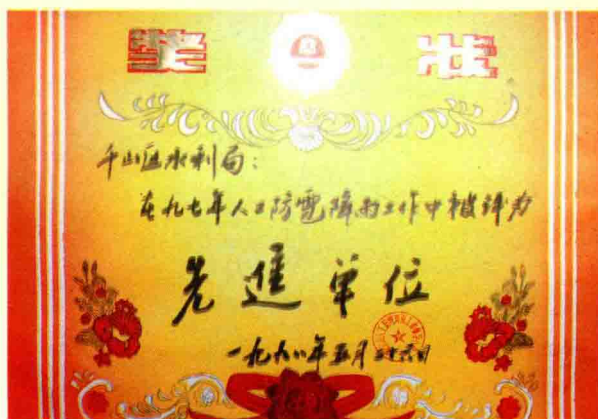 奖状
千山区水利局：
在九七年人工防雹降雨工作中被评为
先進单位
一九九八年五月二十六日